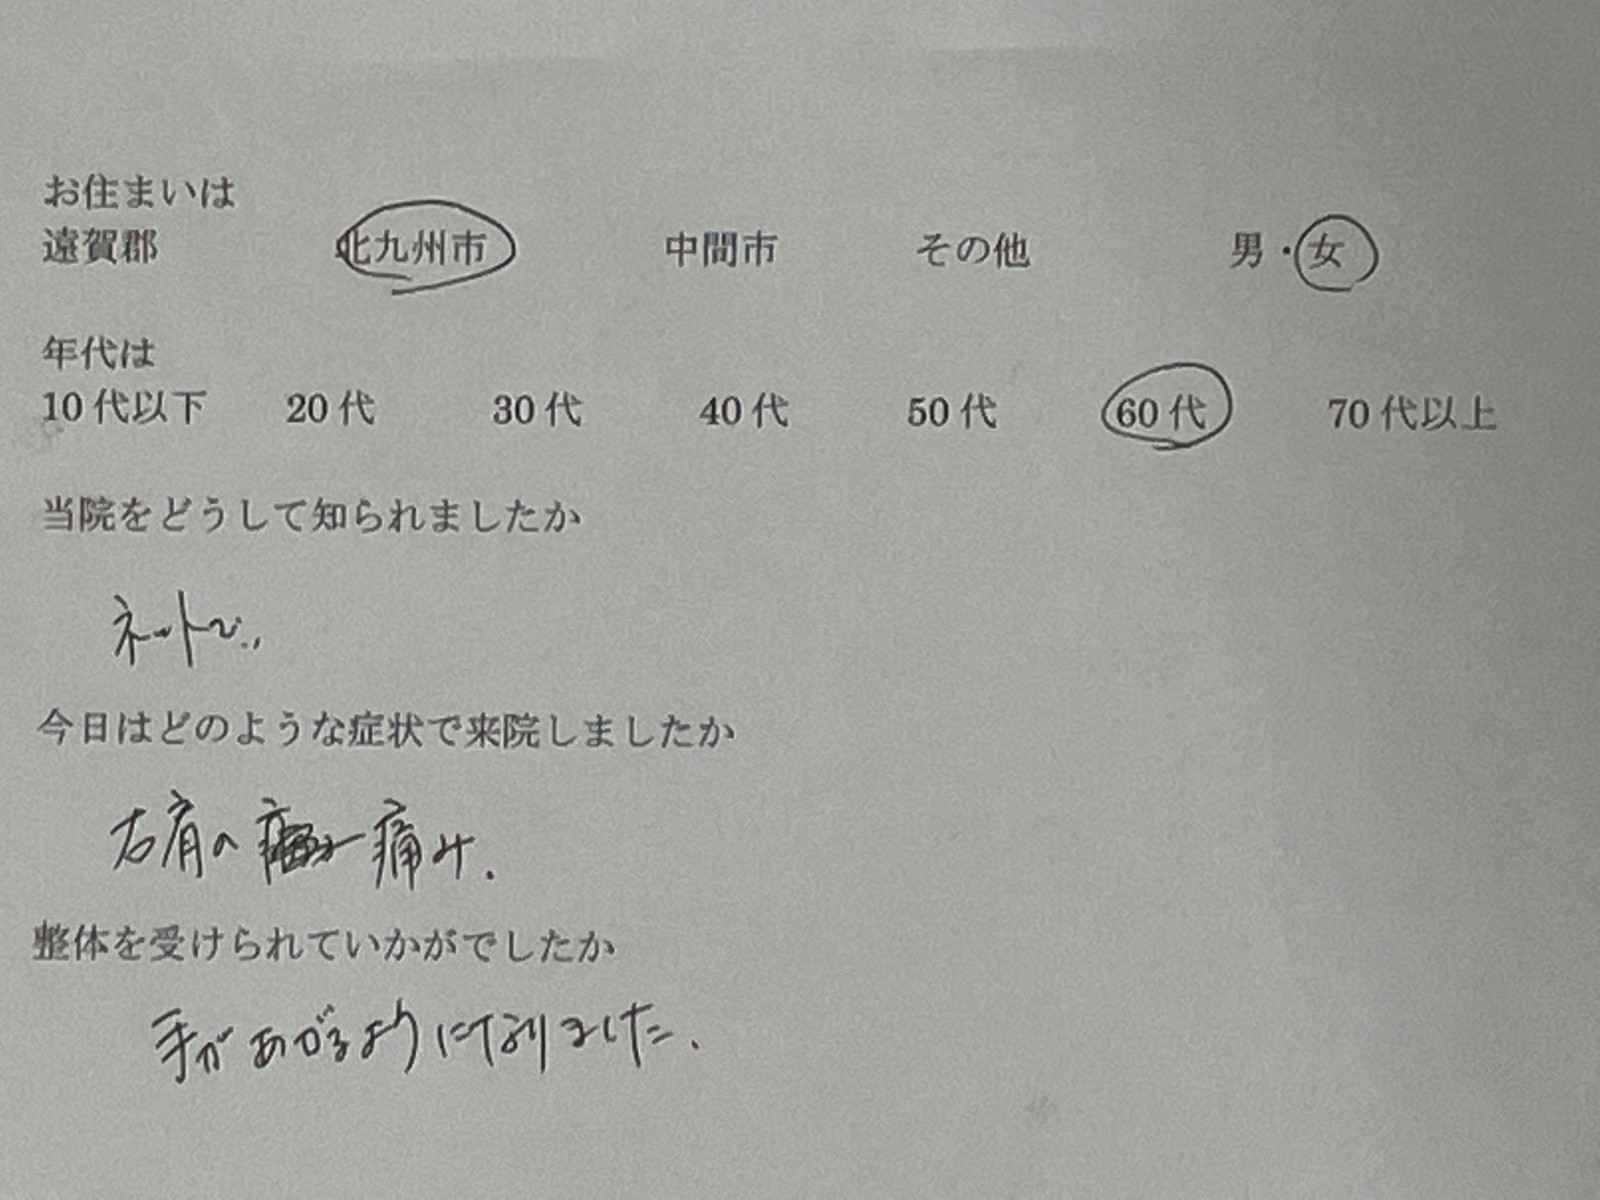 お住まいは
遠賀郡 北九州市 中間市 その他 男・女
年代は
10代以下 20代 30代 40代 50代 60代 70代以上
当院をどうして知られましたか
ネットで..
今日はどのような症状で来院しましたか
右肩の 痛み.
整体を受けられていかがでしたか
手があがるようになりました.